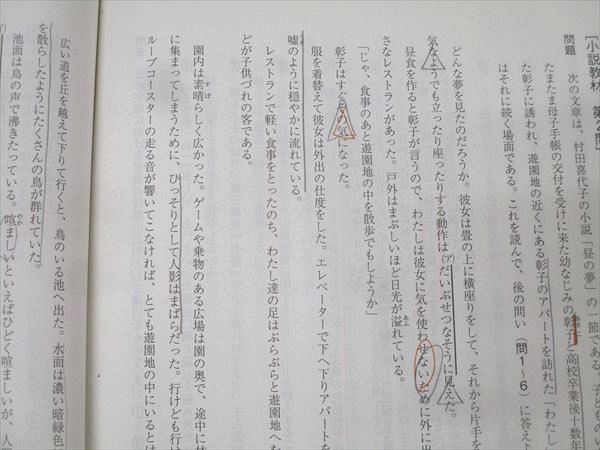 [小説教材 第2問]
問題 次の文章は、村田喜代子の小説「昼の夢」の一節である。子どものい
たまたま母子手帳の交付を受けに来た幼なじみの彰子と高校卒業後十数年
た彰子に誘われ、遊園地の近くにある彰子のアパートを訪れた「わたし」
はそれに続く場面である。これを読んで、後の問い(問1〜6)に答えよ
どんな夢を見たのだろうか。彼女は畳の上に横座りをして、それから片手を
気なようでも立ったり座ったりする動作は(ア)だいぶせつなそうに見えた。
昼食を作ると彰子が言うので、わたしは彼女に気を使わせないために外に出
さなレストランがあった。戸外はまぶしいほど日光が溢あふれている。
「じゃ、食事のあと遊園地の中を散歩でもしようか」
彰子はすぐその気になった。
服を着替えて彼女は外出の仕度をした。エレベーターで下へ下りアパートを
嘘のように穏やかに流れている。
レストランで軽い食事をとったのち、わたし達の足はぶらぶらと遊園地へ
どが子供づれの客である。
園内は素晴すばらしく広かった。ゲームや乗物のある広場は園の奥で、途中に
に集まってしまうために、ひっそりとして人影はまばらだった。行けども行け
ループコースターの走る音が響いてこなければ、とても遊園地の中にいるとは
広い道を丘を越えて下りて行くと、鳥のいる池へ出た。水面は濃い暗緑色
を散らしたようにたくさんの鳥が群れていた。
池面は鳥の声で沸きたっている。喧やかましいといえばひどく喧ましいが、人